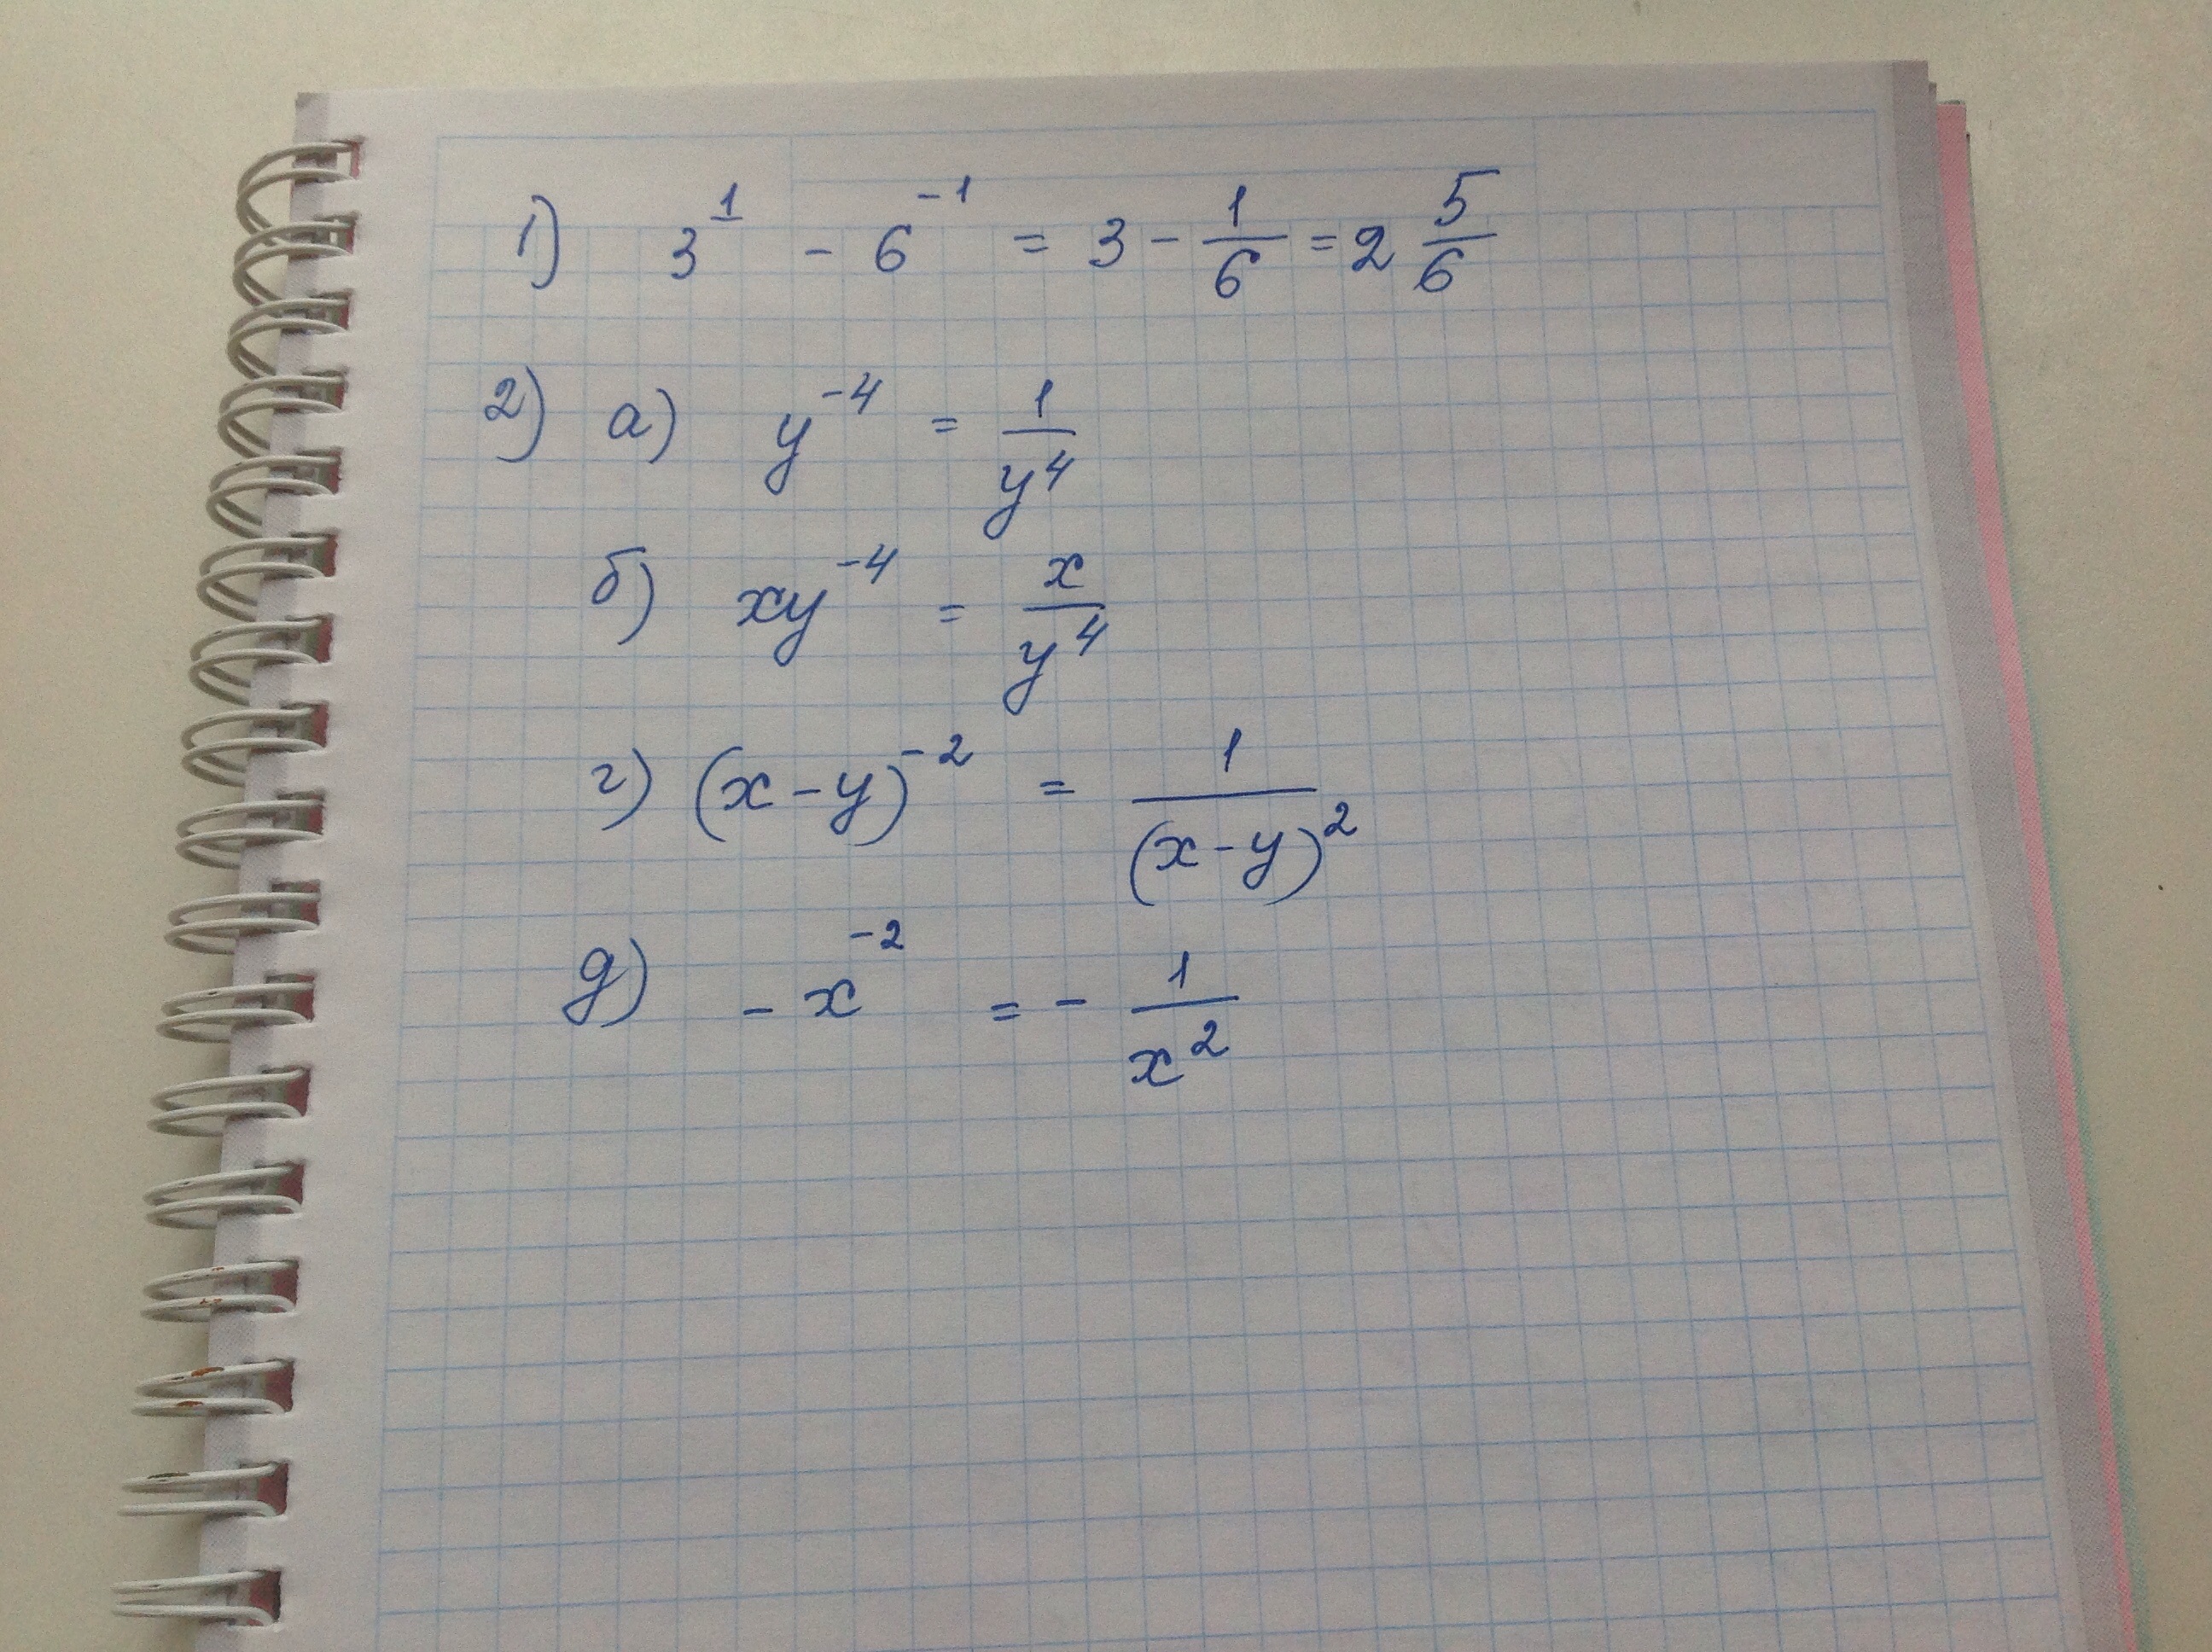 1) 3¹ - 6⁻¹ = 3 - 1/6 = 2 5/6
2) а) y⁻⁴ = 1/y⁴
б) xy⁻⁴ = x/y⁴
г) (x-y)⁻² = 1/(x-y)²
д) -x⁻² = - 1/x²